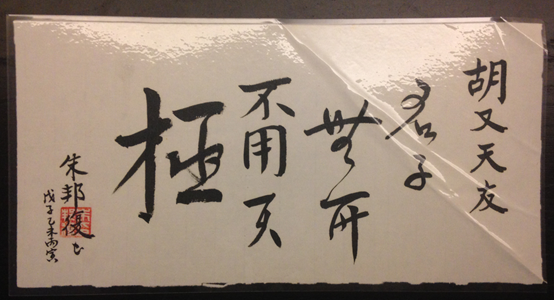 胡又天友
君子
無所
不用其
極
朱邦復书
戊子乙未丙寅